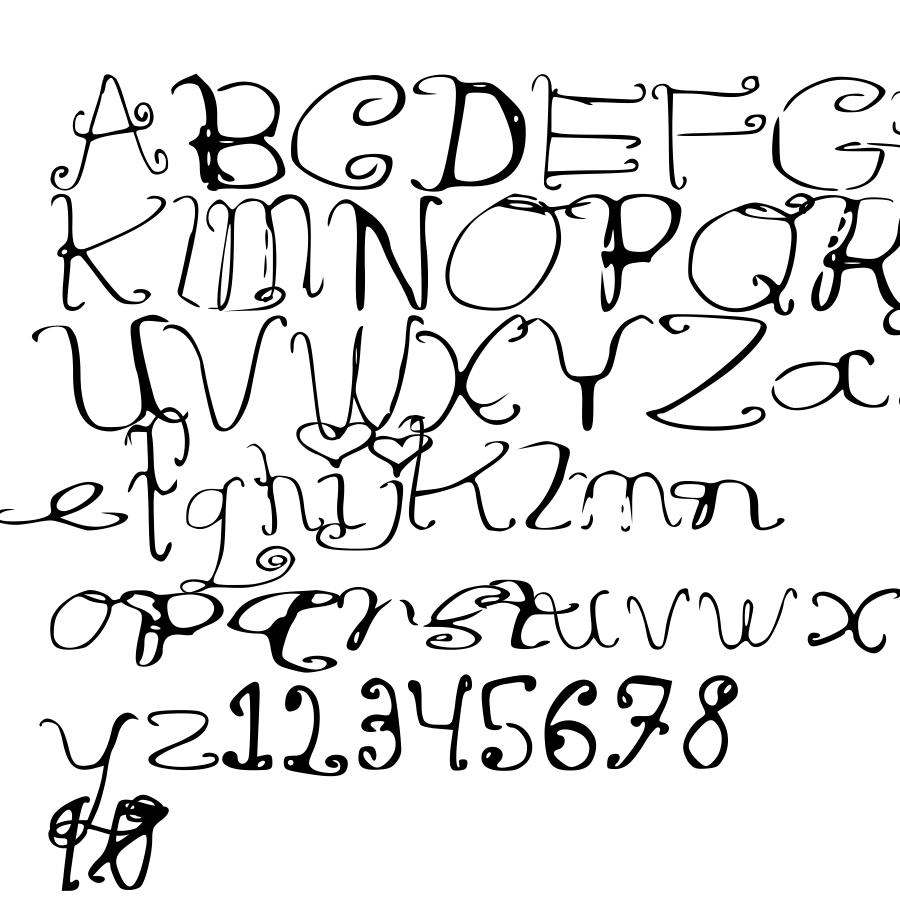 ABCDEFG
KLMNOPQR
UVWXYZa
efghijklmn
opqrstuvwx
yz12345678